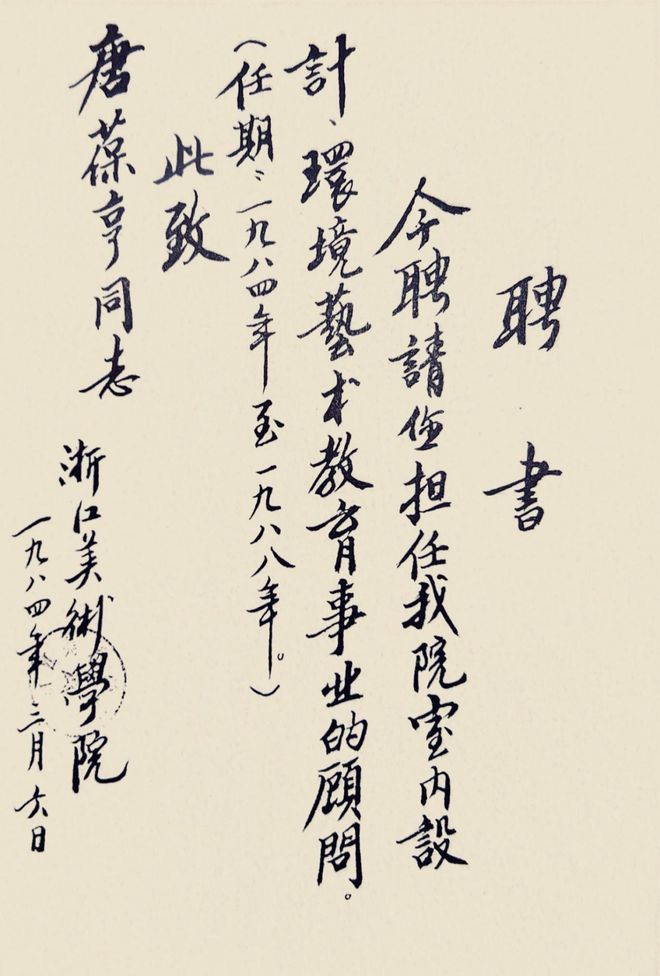 聘書
今聘請您担任我院室内設
計、環境藝术教育事业的顧問。
(任期:一九八四年至一九八八年。)
此致
唐葆亨同志
浙江美術學院
一九八四年三月六日